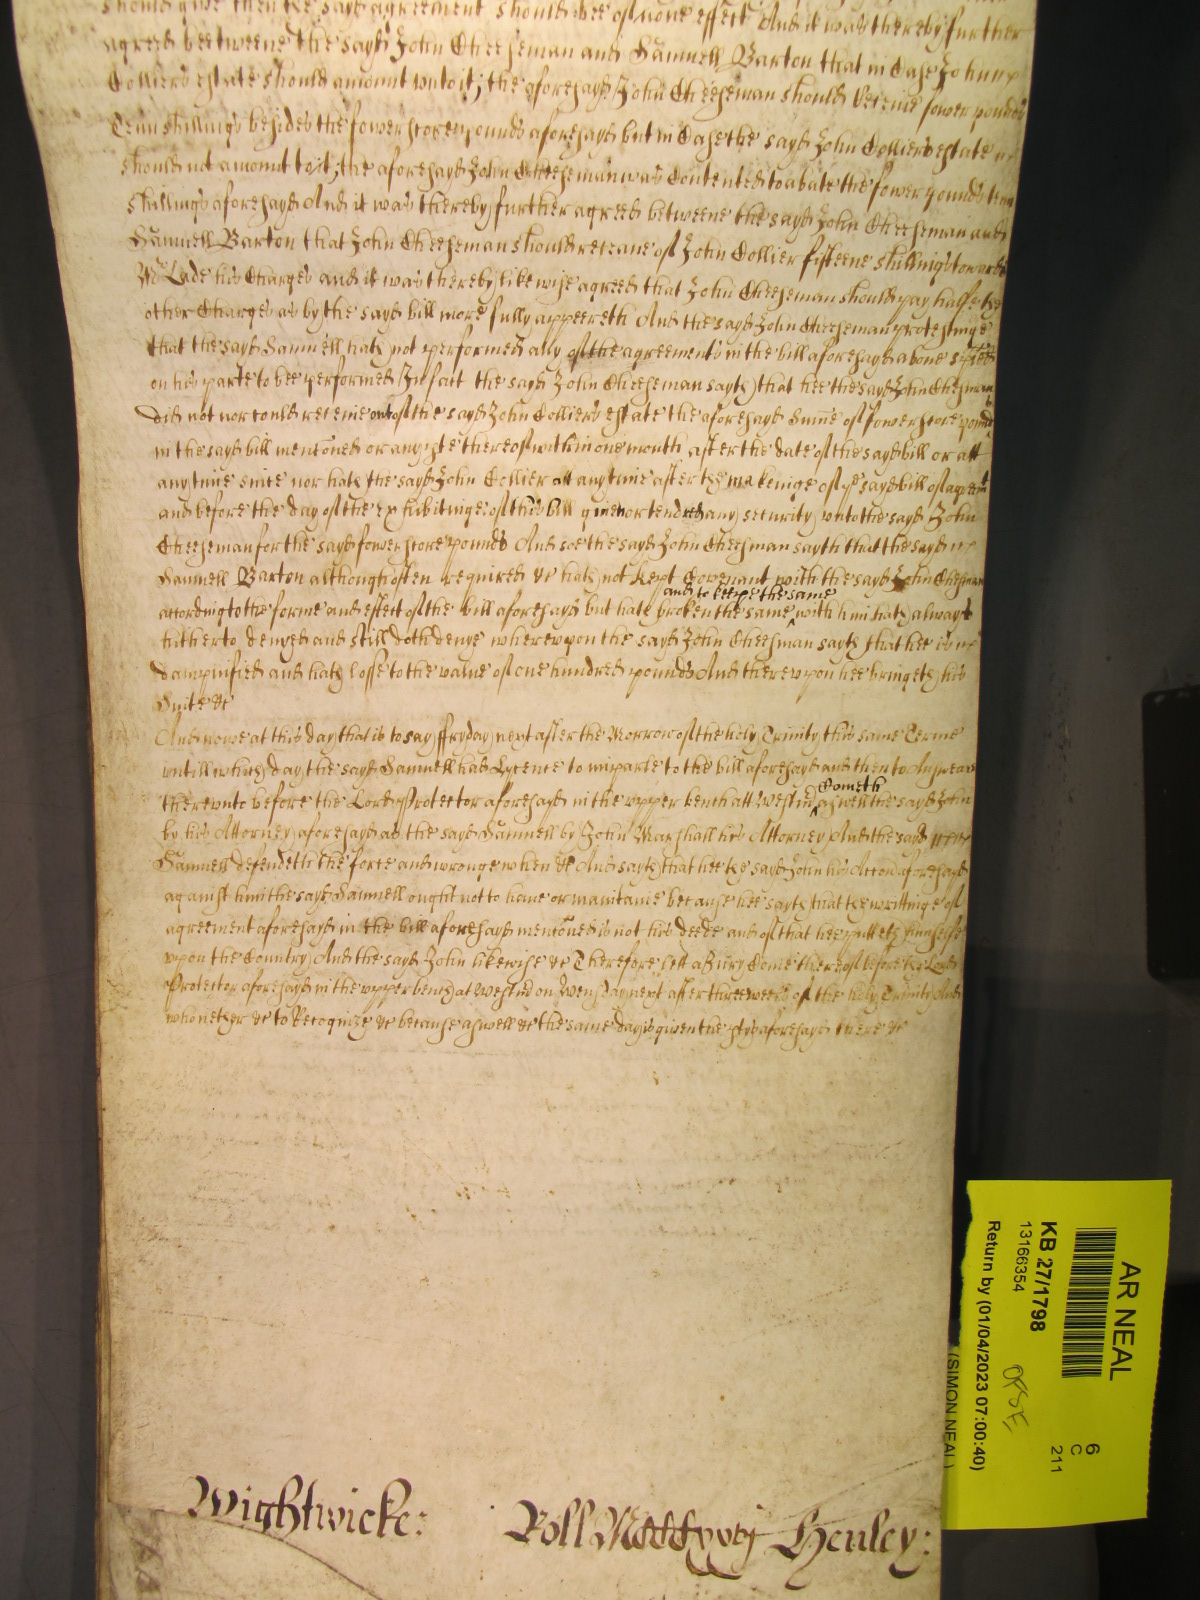 should give then the sayd agreement should bee of none effect And it was thereby further
agreed betweene the sayd John Cheeseman and Samuell Barton that in Case John
Colliers estate should amount unto it; the aforesayd John Cheeseman should receive fower pounds
Tenn shillings besides the fower score pounds aforesayd but in Case the sayd John Colliers estate
should not amount to it; the aforesayd John Cheeseman was Contented to abate the fower pounds tenn
shillings aforesayd And it was thereby further agreed betweene the sayd John Cheeseman and
Samuell Barton that John Cheeseman should receave of John Collier fifteene shillings towards
Mr Lade his Charges and it was thereby likewise agreed that John Cheeseman should pay halfe the
other Charges as by the sayd bill more fully appeereth And the sayd John Cheeseman protestinge
that the sayd Samuell hath not performed any of the agreements in the bill aforesayd above
on his parte to bee performed In fact the sayd John Cheeseman sayth that hee the sayd John Cheesman
did not nor could receive out of the sayd John Colliers estate the aforesayd Sume of fower score pounds
in the sayd bill mentoned or any pte thereof within one month after the date of the sayd bill or att
any time since nor hath the sayd John Collier att any time after the makeinge of ye sayd bill of agreemt
and before the day of the exhibitinge of this bill given or tendred any security unto the sayd John
Cheeseman for the sayd fower score pounds And soe the sayd John Cheesman sayth that the sayd
Samuell Barton although often required &c hath not kept Covenant with the sayd John Cheesman
according to the forme and effect of the bill aforesayd but hath broken the same and to keepe the same with him hath alwayes
hitherto denyed and still doth denye whereupon the sayd John Cheesman sayth that hee is
dampnified and hath losse to the value of one hundred pounds And thereupon hee bringeth his
Suite &c
And nowe at this day that is to say ffryday next after the Morrow of the holy Trinity this same Terme
untill which day the sayd Samuell had Lycence to imparle to the bill aforesayd and then to Answeare
thereunto before the Lord Protector aforesayd in the upper bench att Westmr Cometh aswell the sayd John
by his Attorney aforesayd as the sayd Samuell by John Marshall his Attorney And the sayd
Samuell defendeth the force and wronge when &c And sayth that hee the sayd John his Accon aforesayd
against him the sayd Samuell ought not to have or maintaine because hee sayth that the writtinge of
agreement aforesayd in the bill aforesayd mentoned is not his deede and of that hee putteth himselfe
upon the Country And the sayd John likewise &c Therefore lett a Jury Come thereof before the Lord
Protector aforesayd in the upper bench at Westmr on Wensday next after three weeks of the holy Trinity And
who neyther &c to Recognize &c because aswell &c the same day is given the ptyes aforesayd there &c
Wightwicke: Roll Henley:
AR NEAL
6
C
211
KB 27/1798
13166354
Return by (01/04/2023 07:00:40)
(SIMON NEAL)